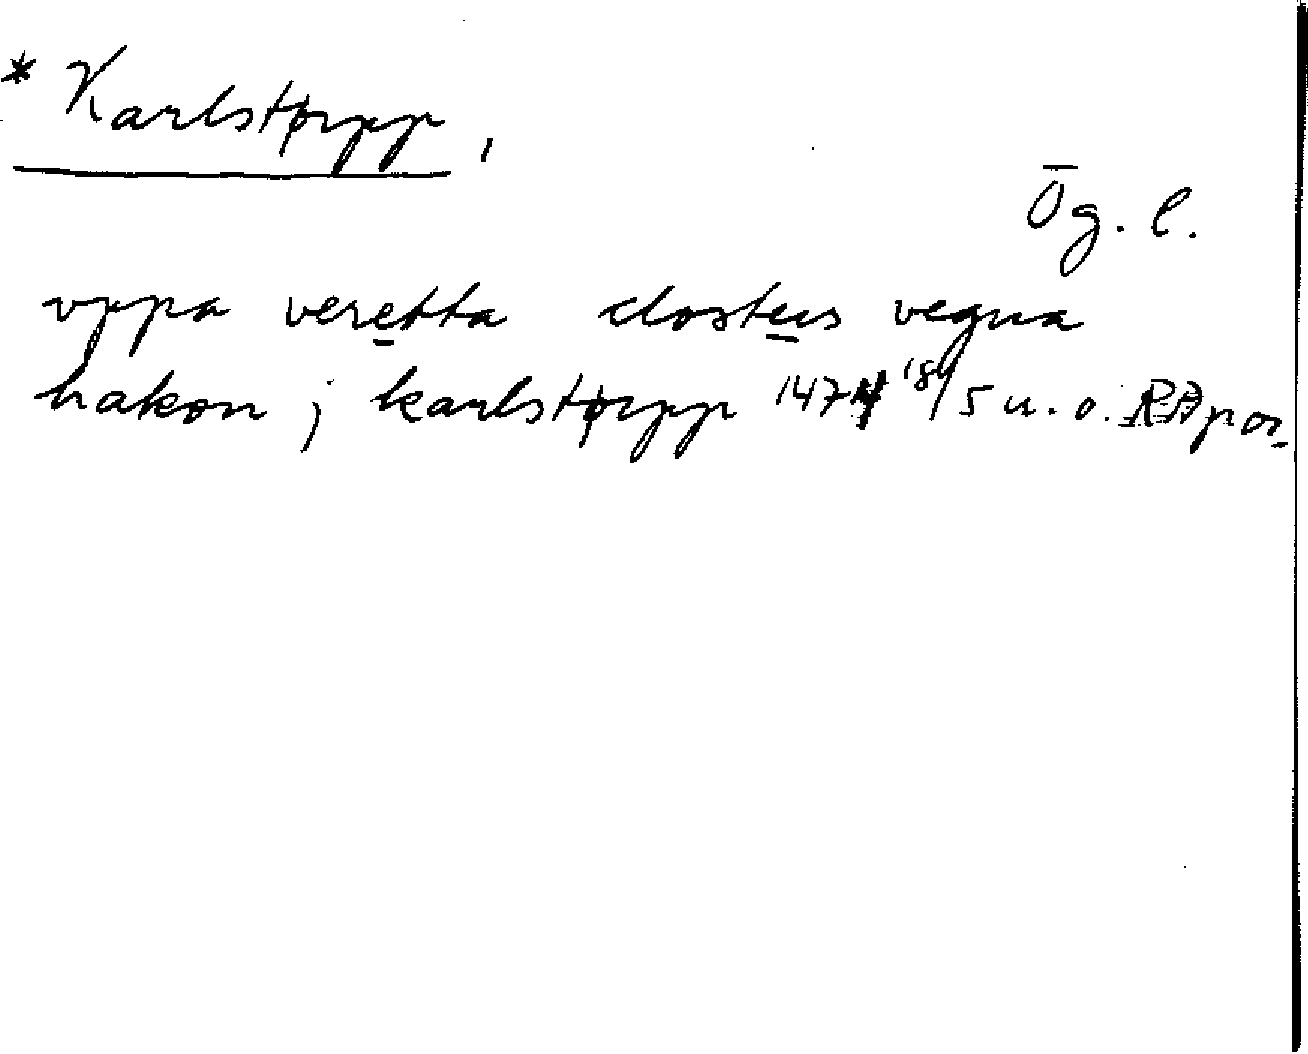 * Karlstørpp,
Ög. l.
vppa veretta closters vegna
hakon j karlstørpp 1474 18/5 u. o. RA por